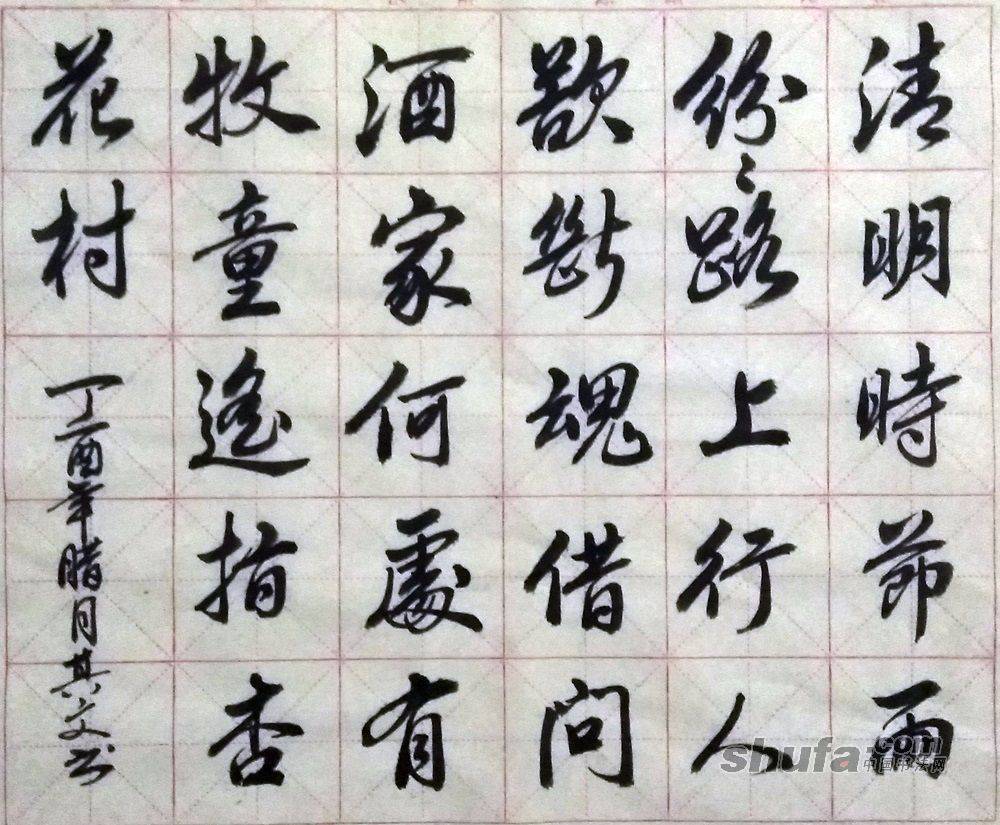 清明時節雨
紛〻路上行人
欲斷魂借问
酒家何處有
牧童遙指杏
花村
丁酉年腊月其文书
shufa.com
中国书法网